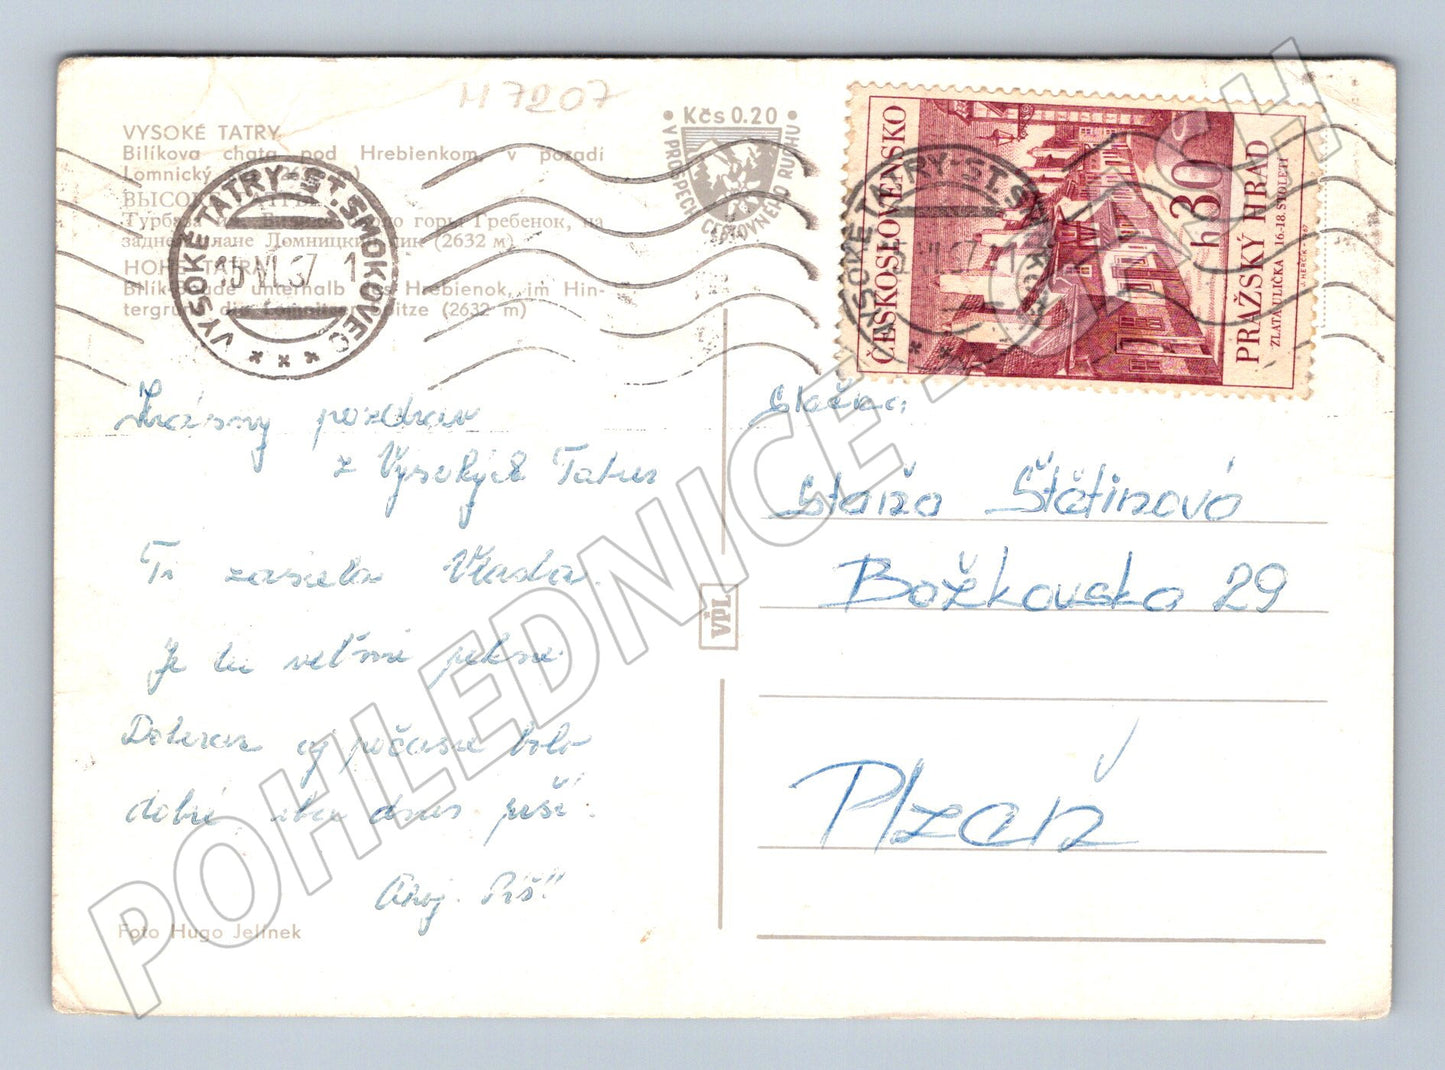 M 7207
VYSOKÉ TATRY
Bilíkova chata pod Hrebienkom, v pozadí
Lomnický (2632 m)
ВЫСОКИЕ ТАТРЫ
Турб горы Гребенок, на
заднем плане Ломницкий пик (2632 м)
HOHE TATRA
Bilík unterhalb des Hrebienok, im Hin-
tergrund die Lomnitzer Spitze (2632 m)
VYSOKÉ TATRY-ST.SMOKOVEC
15.VI.67 1
Kčs 0.20
V PROSPECH CESTOVNÉHO RUCHU
ČESKOSLOVENSKO
30 h
PRAŽSKÝ HRAD
ZLATÁ ULIČKA 16.-18. STOLETÍ
VYSOKÉ TATRY-ST.SMOKOVEC
Krásny pozdrav
z Vysokých Tatier
Ti zasiela Vlasta.
Je tu veľmi pekne.
Doteraz aj počasie bolo
dobré, iba dnes prší.
Ahoj. Píš!!
Foto Hugo Jelínek
VPL
Slečna:
Staňa Štětinová
Božkovská 29
Plzeň
POHLEDNICE